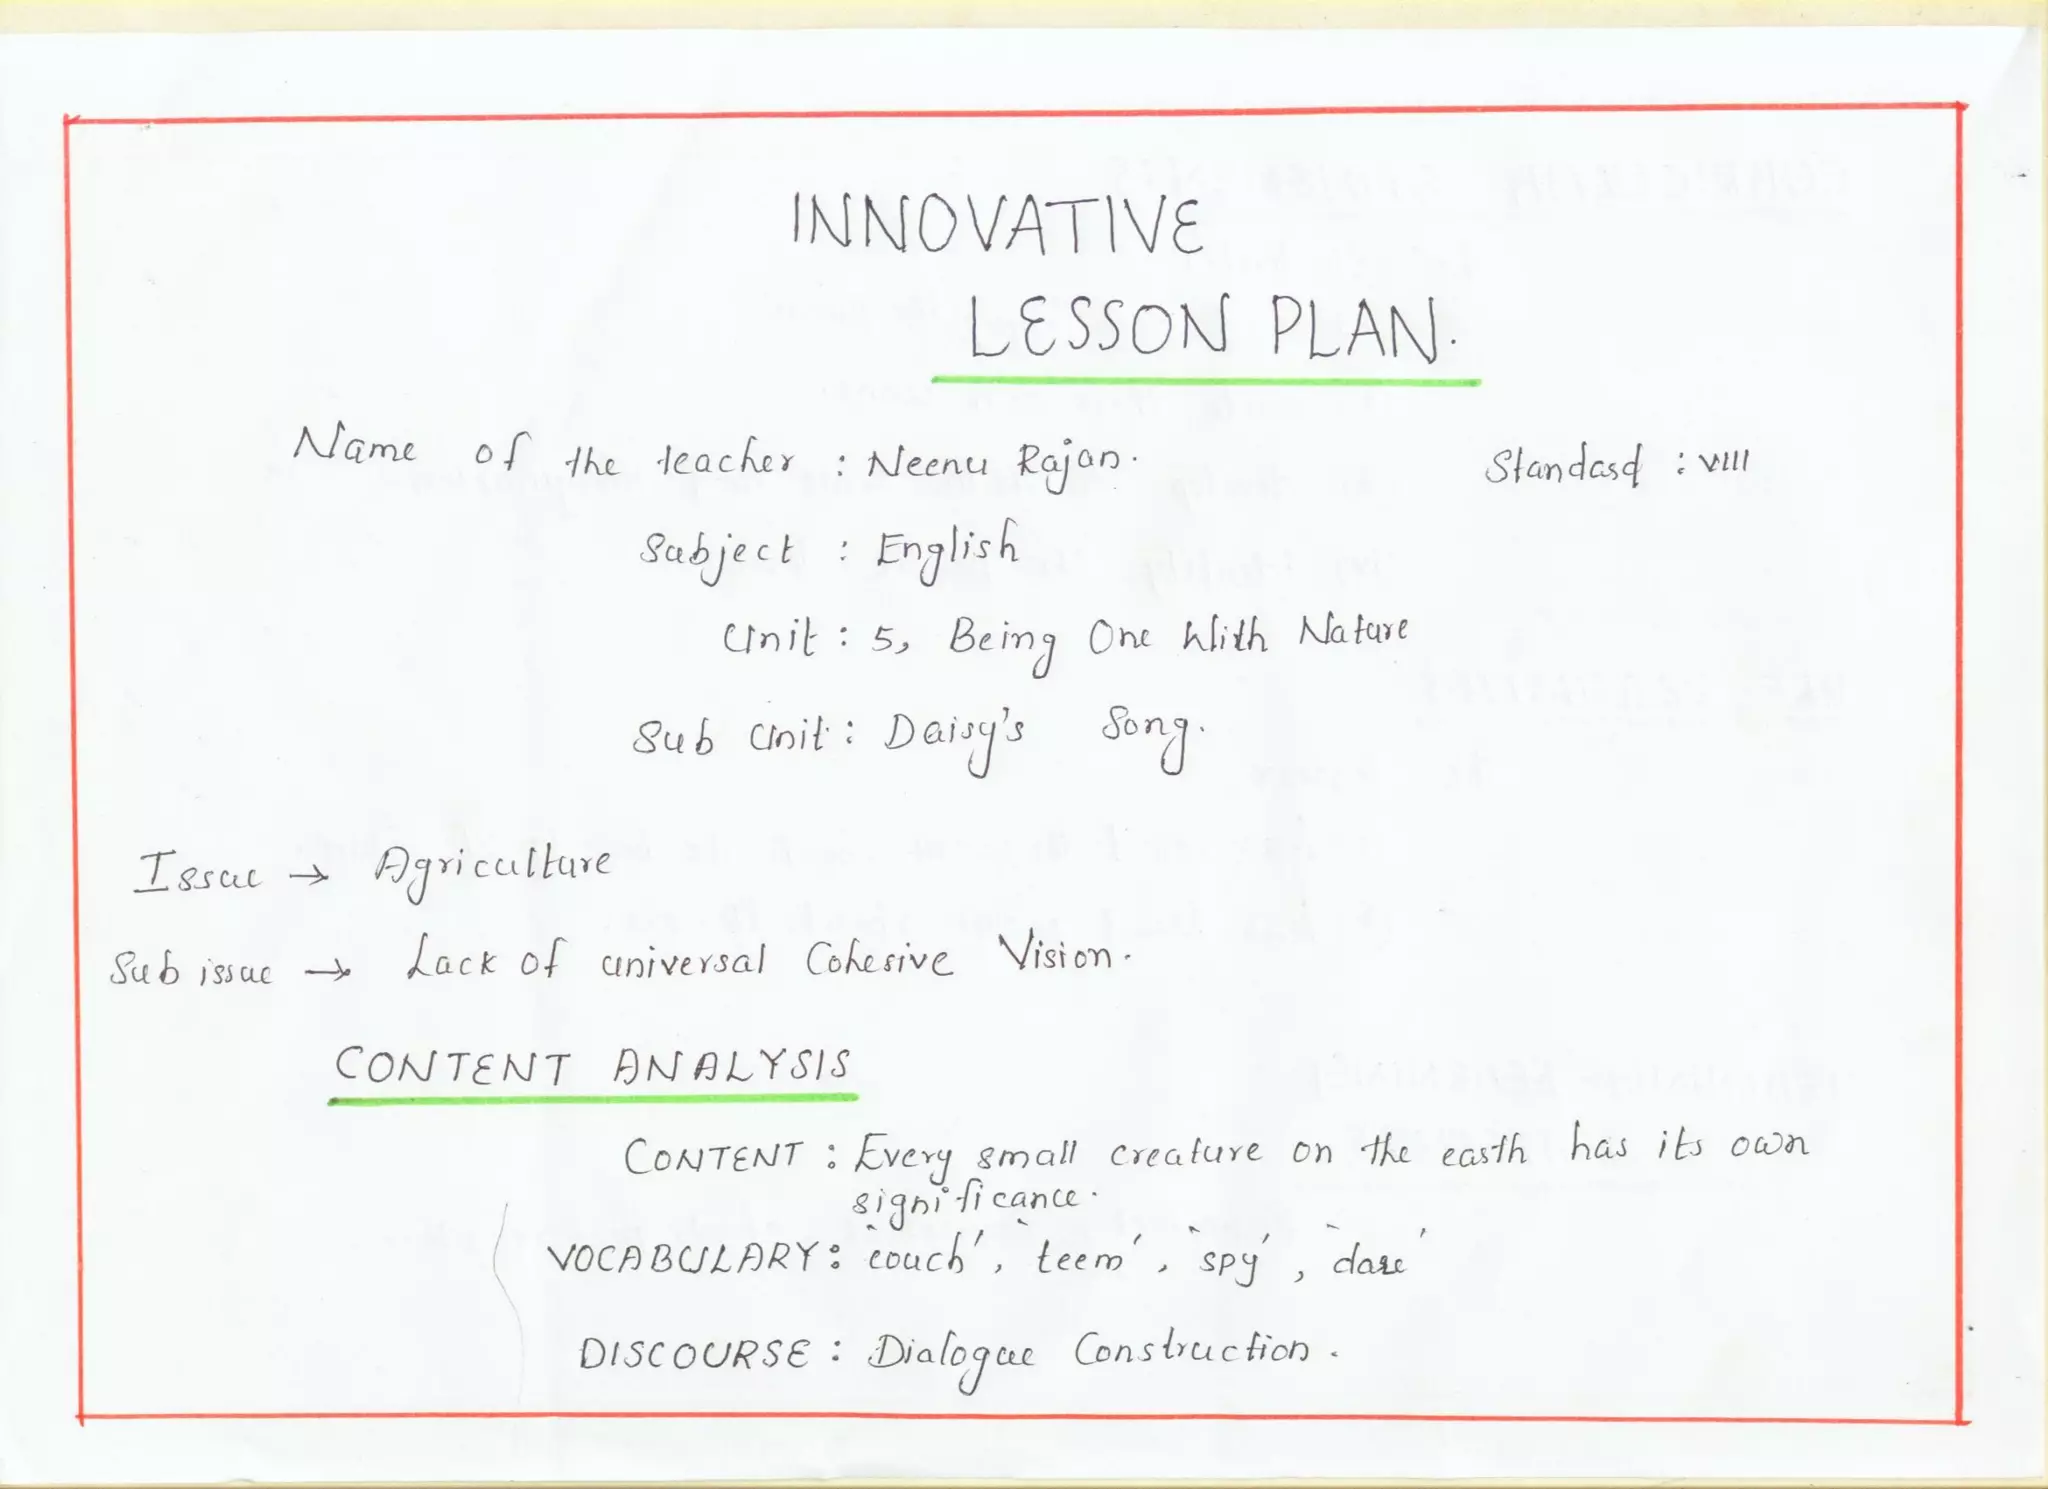 INNOVATIVE
LESSON PLAN.
Name of the teacher : Neenu Rajan. Standard : VIII
Subject : English
Unit : 5, Being One With Nature
Sub Unit : Daisy's Song.
Issue → Agriculture
Sub issue → Lack of universal Cohesive Vision.
CONTENT ANALYSIS
CONTENT : Every small creature on the earth has its own
significance.
VOCABULARY : 'couch', 'teem', 'spy', 'dare'
DISCOURSE : Dialogue Construction.